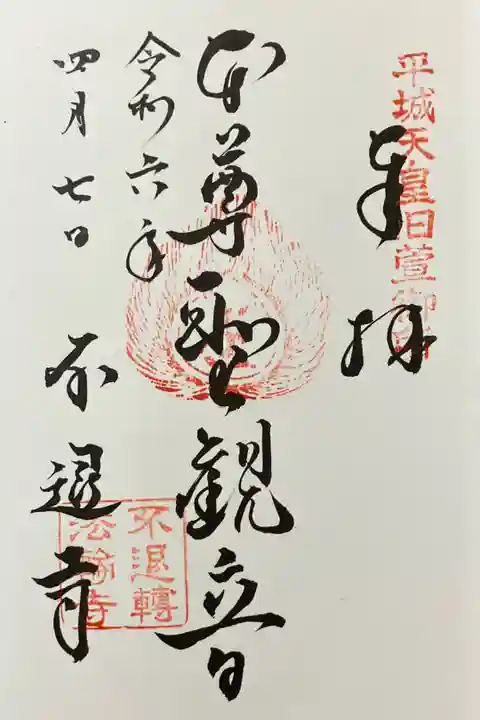 奉拝
平城天皇旧萱御所
本尊聖観音
令和六年
四月七日
不退寺
不退轉
法輪寺